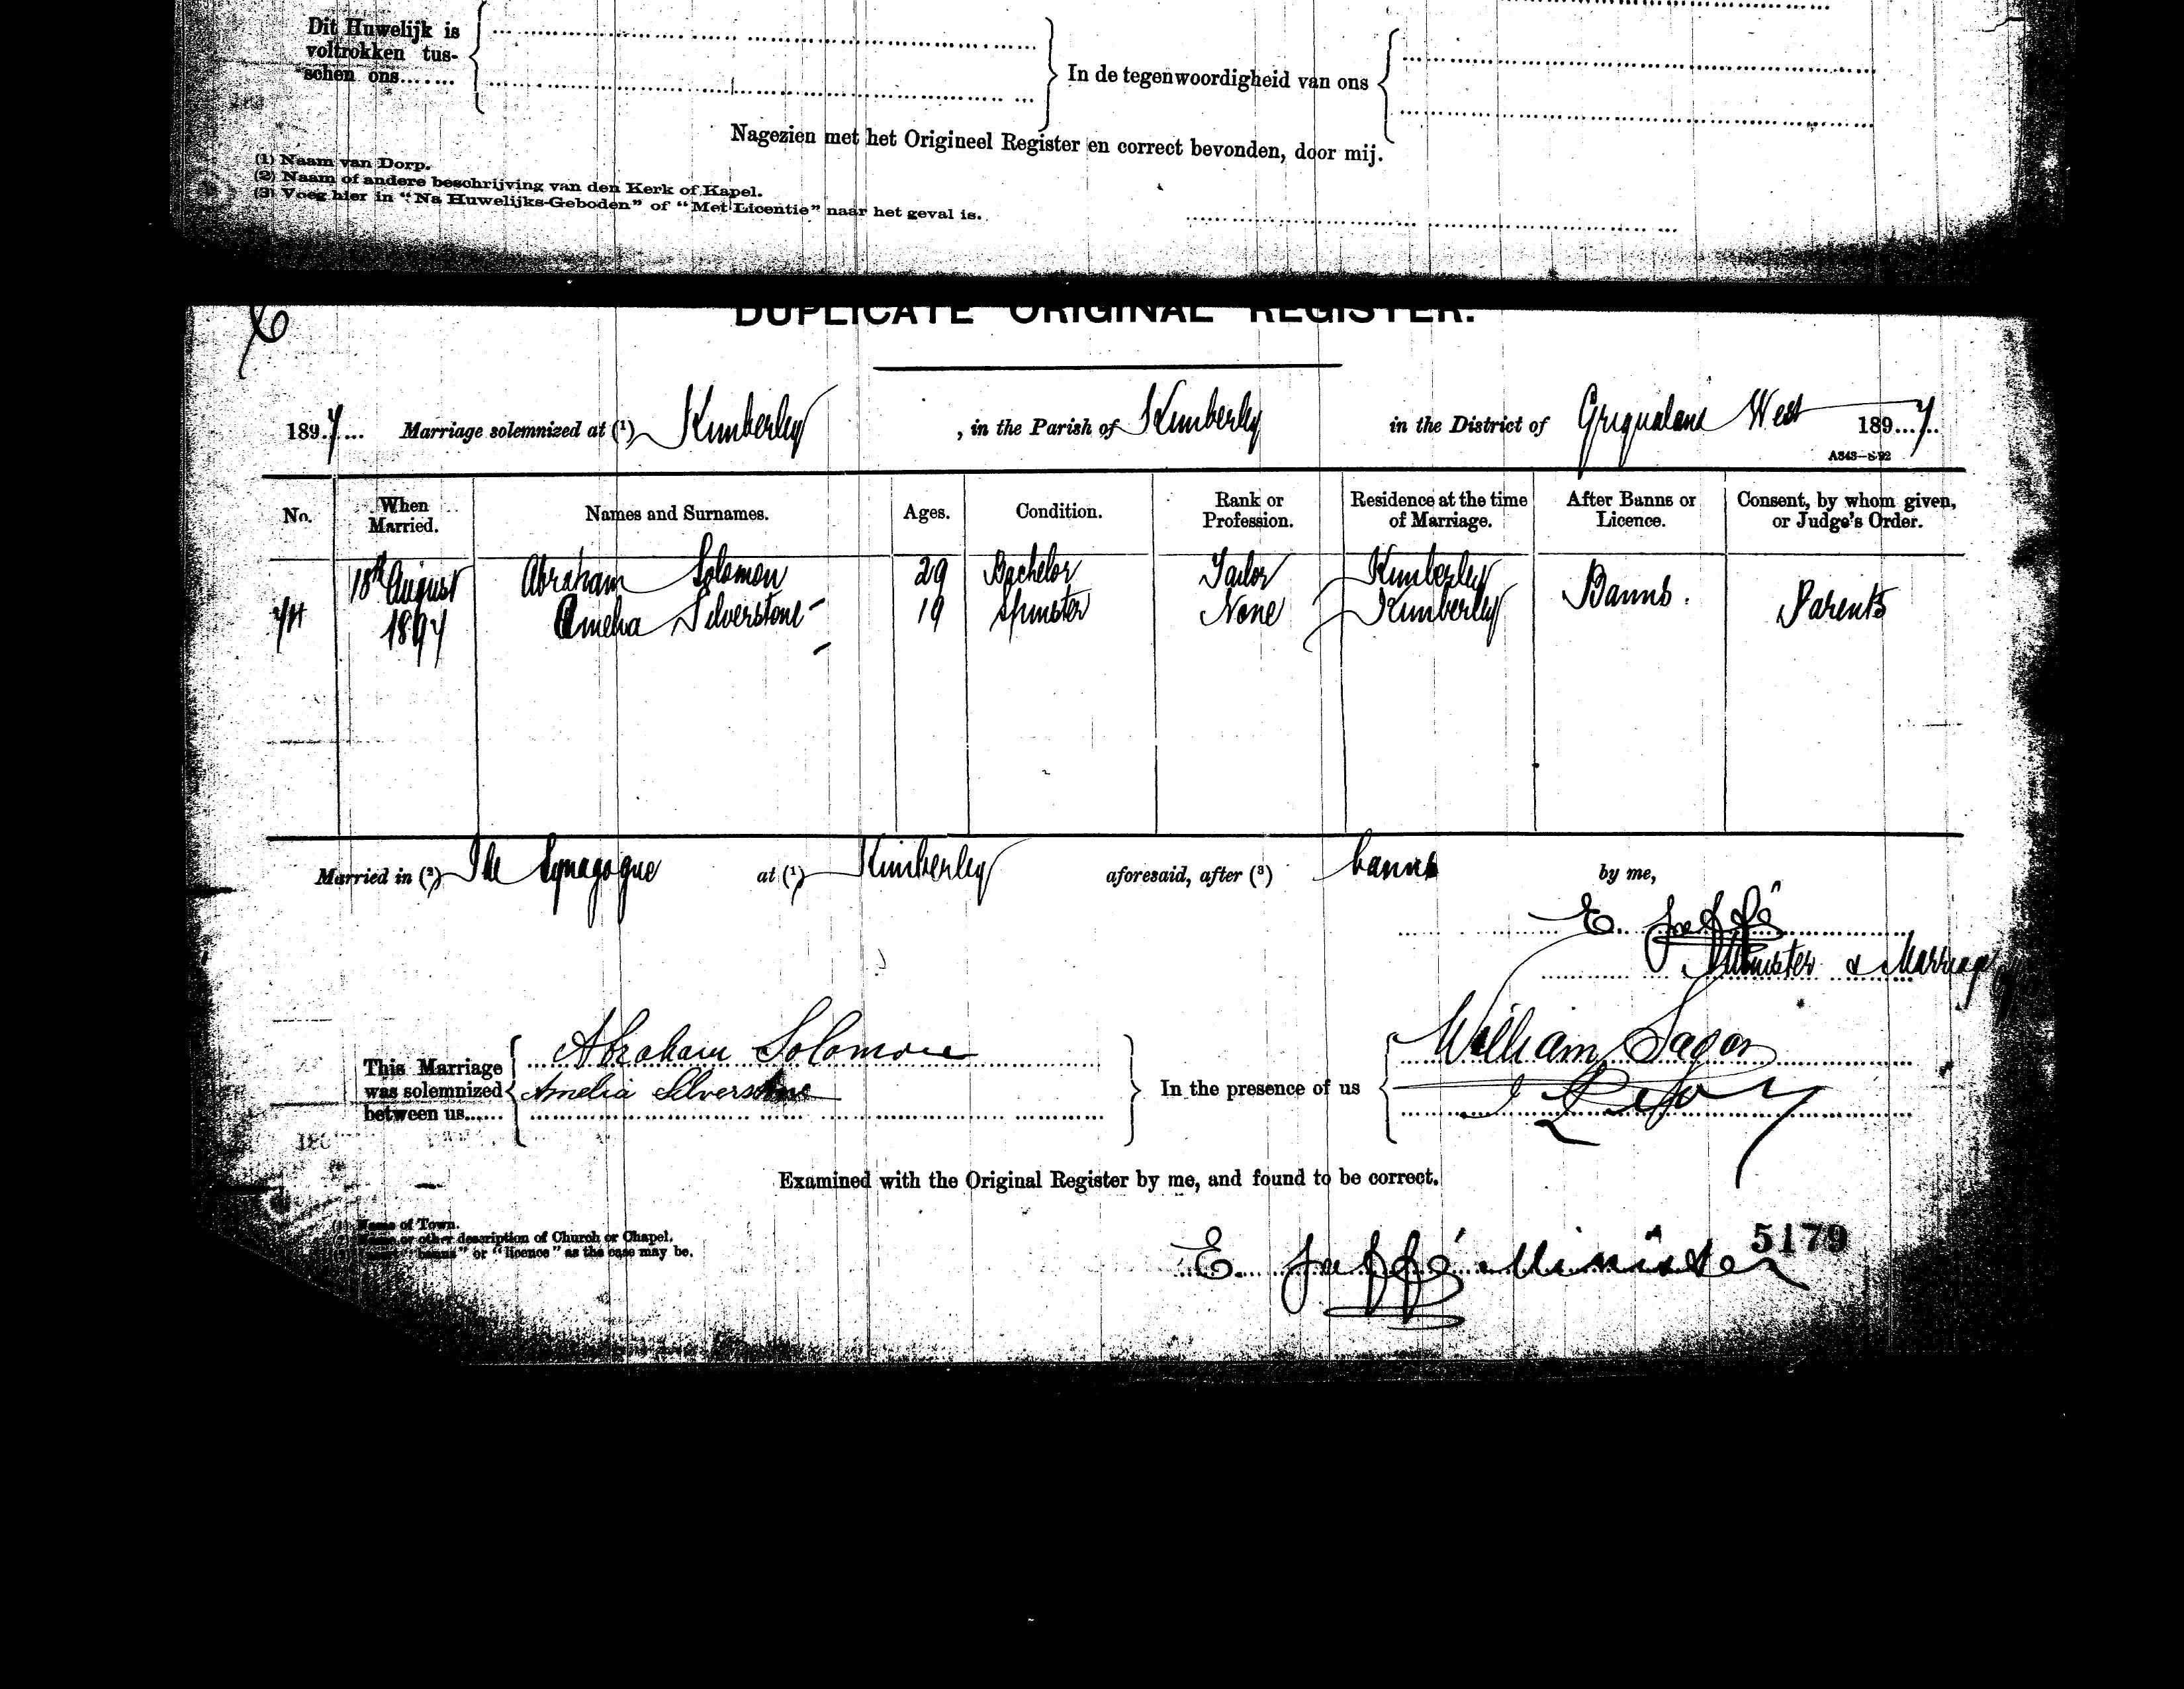 Dit Huwelijk is
voltrokken tus-
schen ons
In de tegenwoordigheid van ons
Nagezien met het Origineel Register en correct bevonden, door mij.
(1) Naam van Dorp.
(2) Naam of andere beschrijving van den Kerk of Kapel.
(3) Voeg hier in "Na Huwelijks-Geboden" of "Met Licentie" naar het geval is.
DUPLICATE ORIGINAL REGISTER.
1897 Marriage solemnized at (1) Kimberley, in the Parish of Kimberley in the District of Griqualand West 1897
A343—8·92
No. When Married. Names and Surnames. Ages. Condition. Rank or Profession. Residence at the time of Marriage. After Banns or Licence. Consent, by whom given, or Judge's Order.
18th August Abraham Solomon 29 Bachelor Tailor Kimberley Banns. Parents
1897 Amelia Silverstone 19 Spinster None Kimberley
Married in (2) The Synagogue at (1) Kimberley aforesaid, after (3) banns by me,
E. Jaffé
Minister & Marriage
This Marriage
was solemnized
between us
Abraham Solomon
Amelia Silverstone
In the presence of us
William Sagar
Examined with the Original Register by me, and found to be correct.
(1) Name of Town.
(2) Name or other description of Church or Chapel.
"banns" or "licence" as the case may be.
E. Jaffé Minister
5179